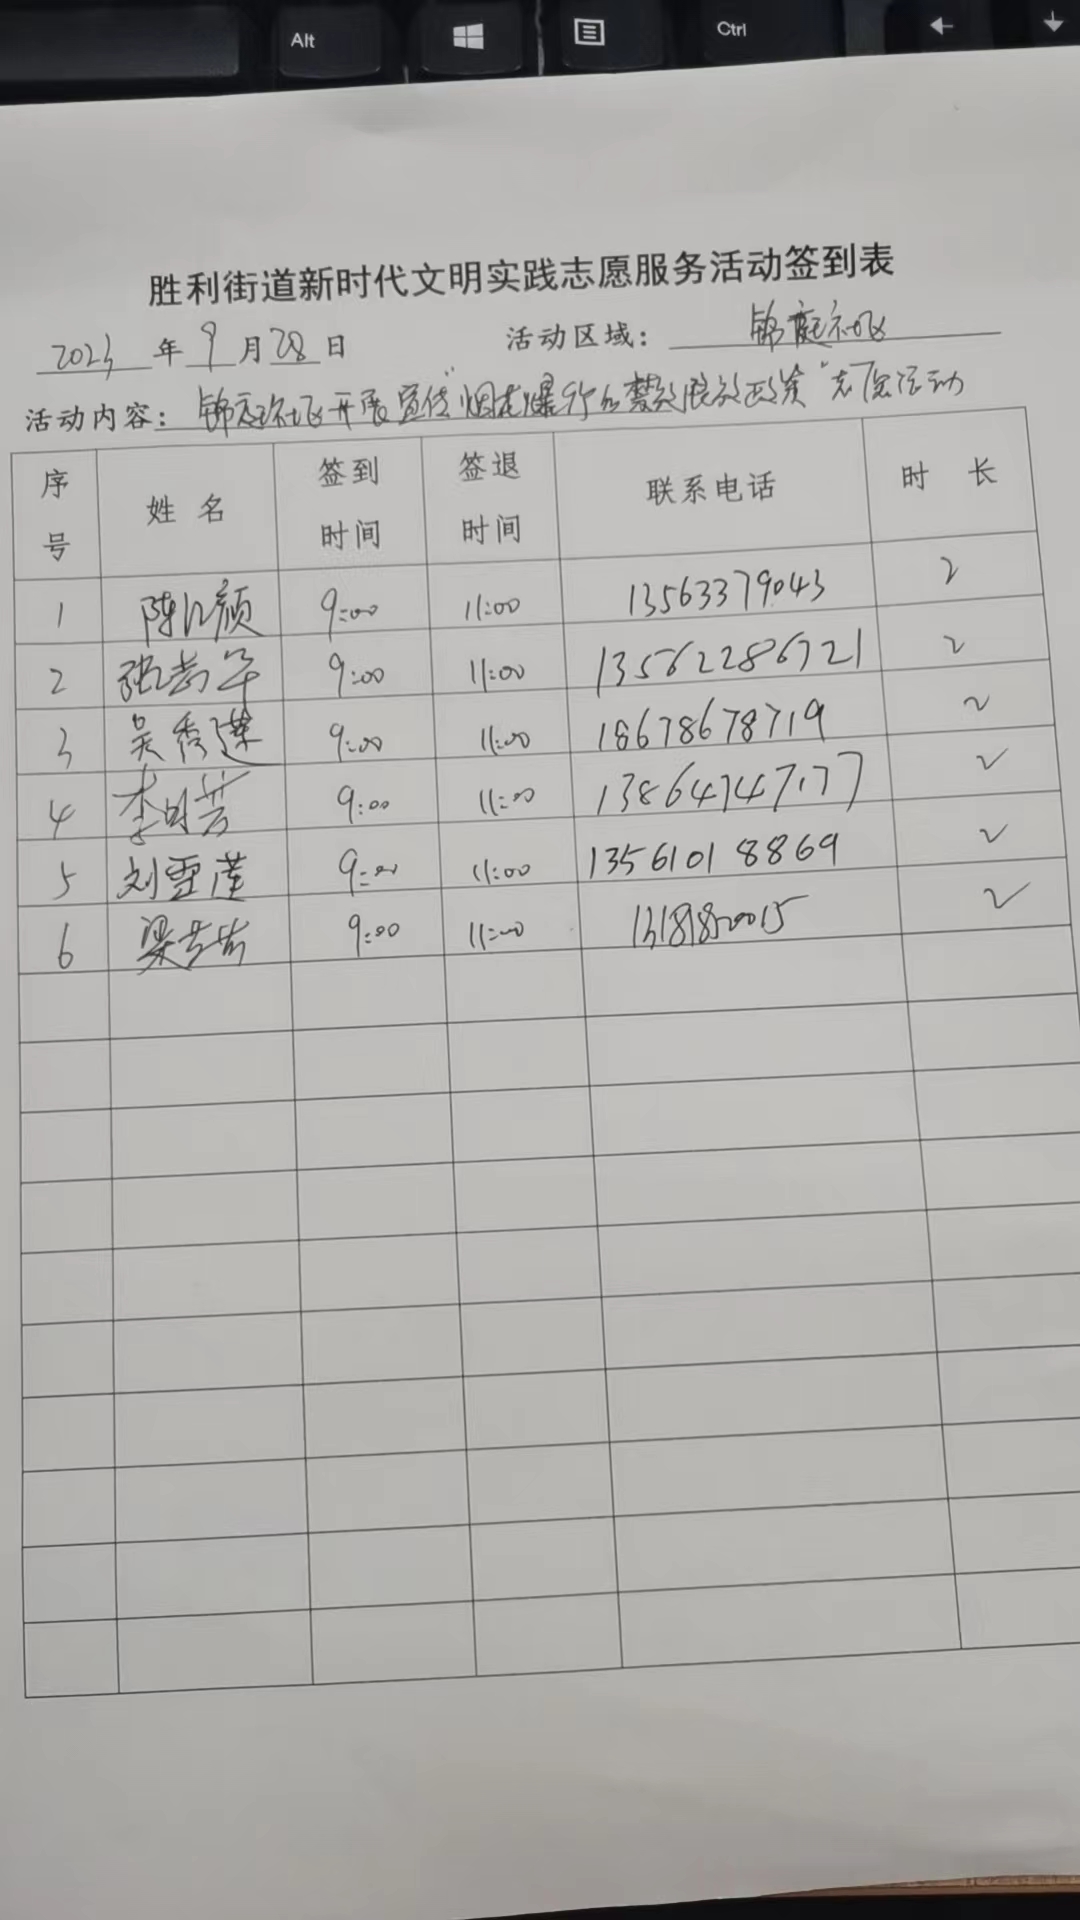 Alt Ctrl
胜利街道新时代文明实践志愿服务活动签到表
2023 年 9 月 28 日 活动区域: 锦庭社区
活动内容: 锦庭社区开展宣传"烟花爆竹禁放限放政策"志愿活动
序号 姓名 签到时间 签退时间 联系电话 时长
1 陈 颜 9:00 11:00 13563379043 2
2 张 年 9:00 11:00 13562286721 2
3 吴秀莲 9:00 11:00 18678678719 2
4 李 芳 9:00 11:00 13864747177 2
5 刘雪莲 9:00 11:00 13561018869 2
6 梁 9:00 11:00 2